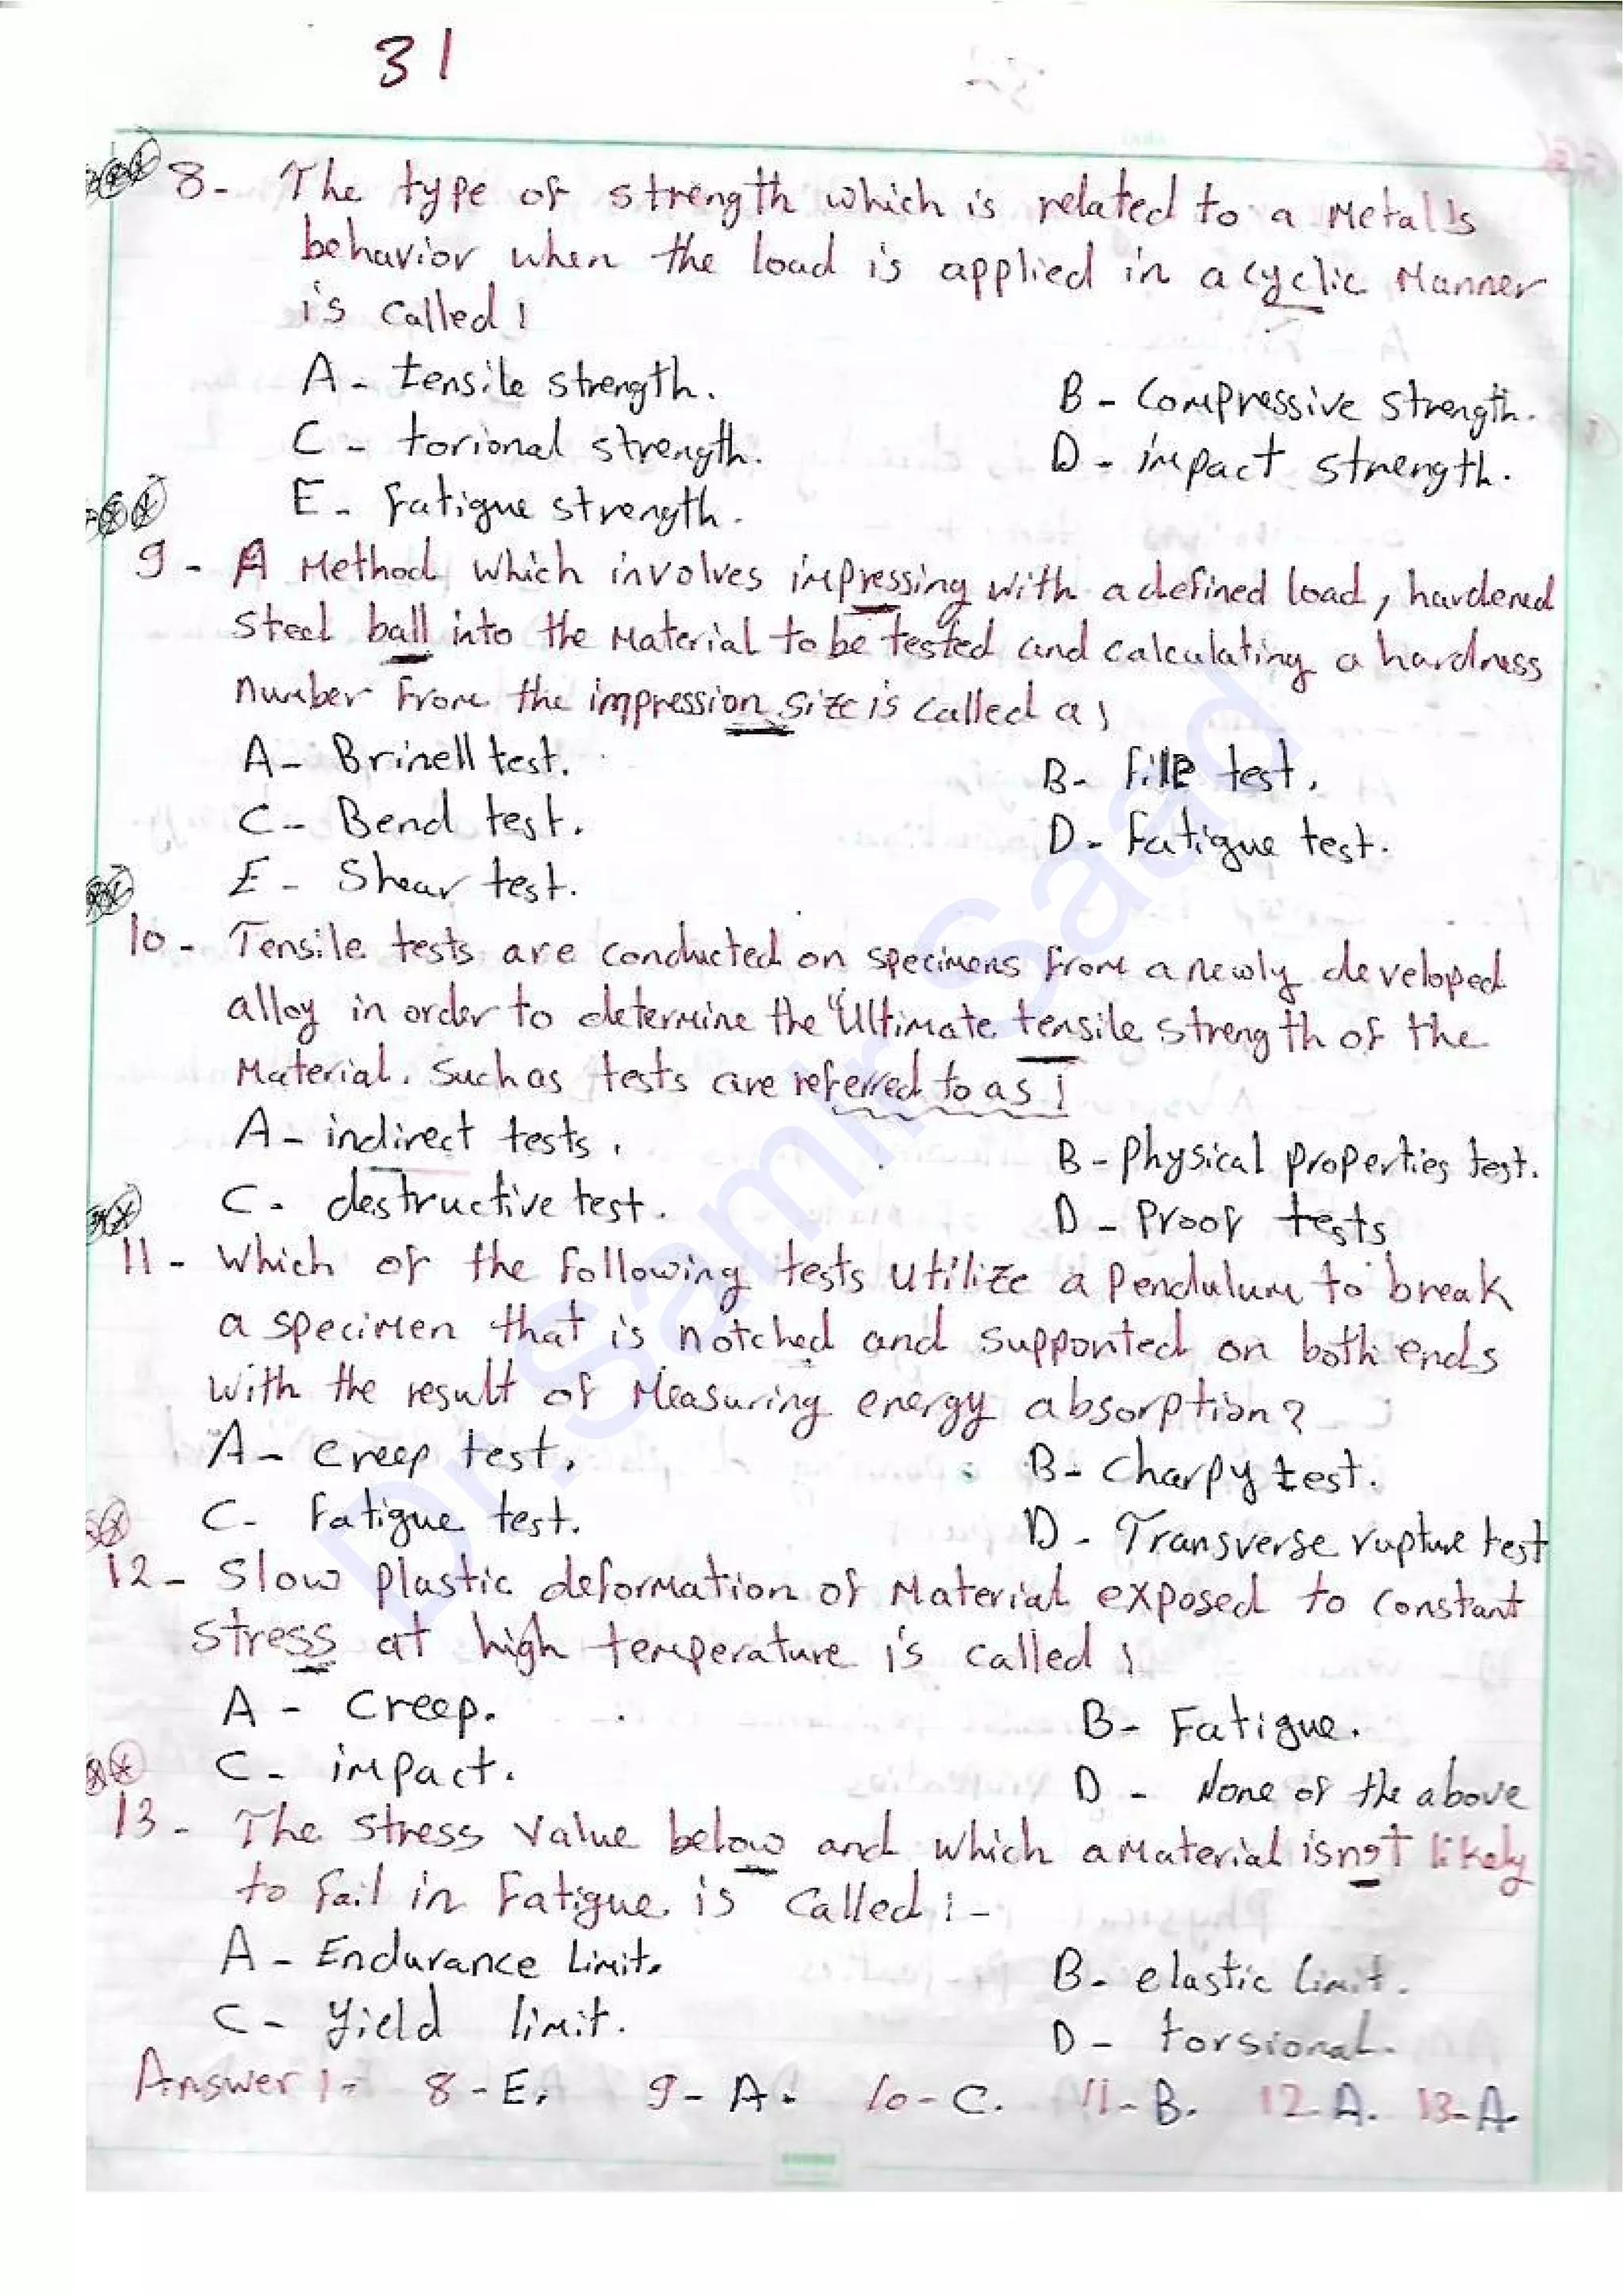 31
8- The type of strength which is related to a Metal's
behavior when the load is applied in a cyclic Manner
is called :
A - tensile strength.
B - Compressive strength.
C - torional strength.
D - impact strength.
E - fatigue strength.
9 - A Method which involves impressing with a defined load, hardened
steel ball into the Material to be tested and calculating a hardness
number From the impression size is called a :
A - Brinell test.
B - file test.
C - Bend test.
D - Fatigue test.
E - Shear test.
10 - Tensile tests are conducted on specimens From a newly developed
alloy in order to determine the "Ultimate tensile strength of the
Material. Such as tests are referred to as :
A - indirect tests.
B - Physical properties test.
C - destructive test.
D - Proof tests
11 - Which of the following tests utilize a Pendulum to break
a specimen that is notched and supported on both ends
with the result of Measuring energy absorption?
A - Creep test.
B - Charpy test.
C - Fatigue test.
D - Transverse rupture test
12 - Slow Plastic deformation of Material exposed to constant
stress at high temperature is called :
A - Creep.
B - Fatigue.
C - impact.
D - None of the above
13 - The stress value below and which a Material is not likely
to fail in Fatigue is called :-
A - Endurance Limit.
B - elastic limit.
C - yield limit.
D - torsional.
Answer :- 8 - E. 9 - A. 10 - C. 11 - B. 12 - A. 13 - A.
Dr. Samir Saad